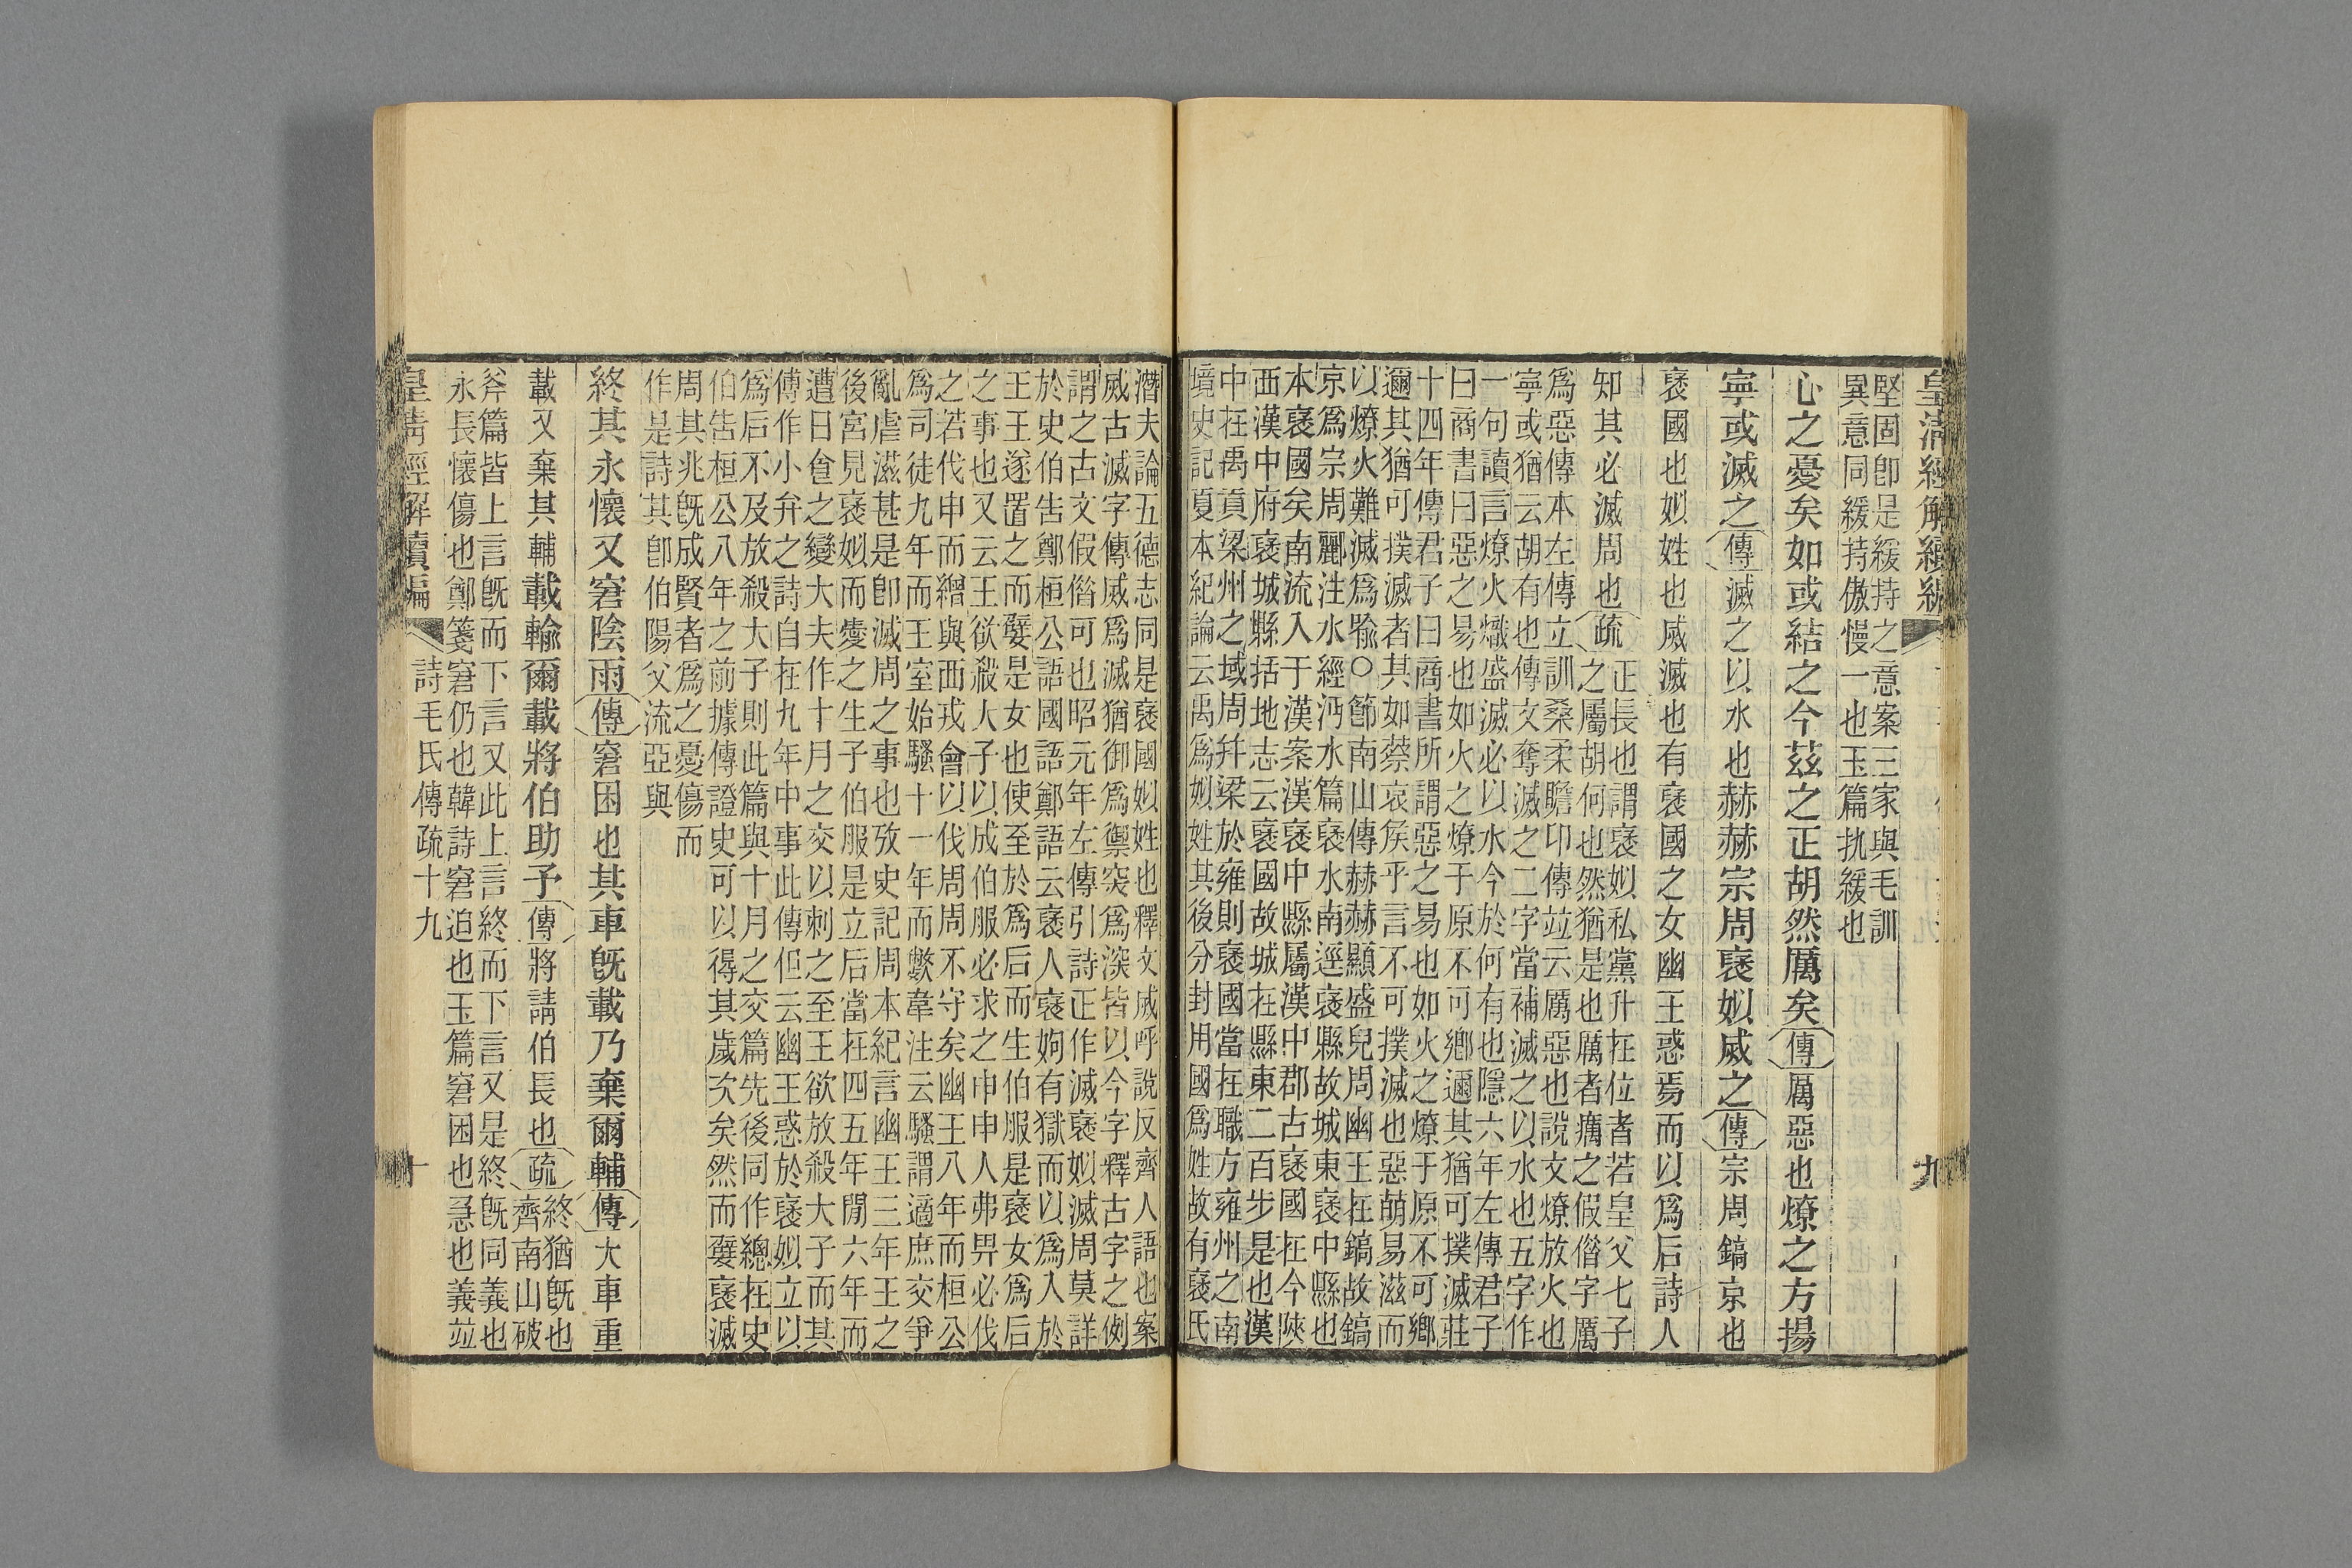 皇清經解續編
九
堅固卽是緩持之意案三家與毛訓
異意同緩持傲慢一也玉篇扏緩也
心之憂矣如或結之今茲之正胡然厲矣傳厲惡也燎之方揚
寧或滅之傳滅之以水也赫赫宗周襃姒烕之傳宗周鎬京也
襃國也姒姓也烕滅也有襃國之女幽王惑焉而以爲后詩人
知其必滅周也疏
正長也謂襃姒私黨升在位者若皇父七子
之屬胡何也然猶是也厲者癘之假借字厲
爲惡傳本左傳立訓桑柔瞻卬傳竝云厲惡也說文燎放火也
寧或猶云胡有也傳文奪滅之二字當補滅之以水也五字作
一句讀言燎火熾盛滅必以水今於何有也隱六年左傳君子
曰商書曰惡之易也如火之燎于原不可鄉邇其猶可撲滅莊
十四年傳君子曰商書所謂惡之易也如火之燎于原不可鄉
邇其猶可撲滅者其如蔡哀矦乎言不可撲滅也惡萌易滋而
以燎火難滅爲喩○節南山傳赫赫顯盛皃周幽王在鎬故鎬
京爲宗周酈注水經沔水篇襃水南逕襃縣故城東襃中縣也
本襃國矣南流入于漢案漢襃中縣屬漢中郡古襃國在今陝
西漢中府襃城縣括地志云襃國故城在縣東二百步是也漢
中在禹貢梁州之域周幷梁於雍則襃國當在職方雍州之南
境史記夏本紀論云禹爲姒姓其後分封用國爲姓故有襃氏
潛夫論五德志同是襃國姒姓也釋文烕呼說反齊人語也案
烕古滅字傳烕爲滅猶御爲禦突爲深皆以今字釋古字之例
謂之古文假借可也昭元年左傳引詩正作滅襃姒滅周莫詳
於史伯告鄭桓公語國語鄭語云襃人襃姁有獄而以爲入於
王王遂置之而嬖是女也使至於爲后而生伯服是襃女爲后
之事也又云王欲殺大子以成伯服必求之申申人弗畀必伐
之若伐申而繒與西戎會以伐周周不守矣幽王八年而桓公
爲司徒九年而王室始騷十一年而斃韋注云騷謂適庶交爭
亂虐滋甚是卽滅周之事也攷史記周本紀言幽王三年王之
後宮見襃姒而愛之生子伯服是立后當在四五年閒六年而
遭日食之變大夫作十月之交以刺之至王欲放殺大子而其
傅作小弁之詩自在九年中事此傳但云幽王惑於襃姒立以
爲后不及放殺大子則此篇與十月之交篇先後同作總在史
伯告桓公八年之前據傳證史可以得其歲次矣然而嬖襃滅
周其兆旣成賢者爲之憂傷而
作是詩其卽伯陽父流亞與
終其永懷又窘陰雨傳窘困也其車旣載乃棄爾輔傳大車重
載又棄其輔載輸爾載將伯助予傳將請伯長也疏
終猶旣也
齊南山破
斧篇皆上言旣而下言又此上言終而下言又是終旣同義也
永長懷傷也鄭箋窘仍也韓詩窘迫也玉篇窘困也急也義竝
皇清經解續編
詩毛氏傳疏十九
十